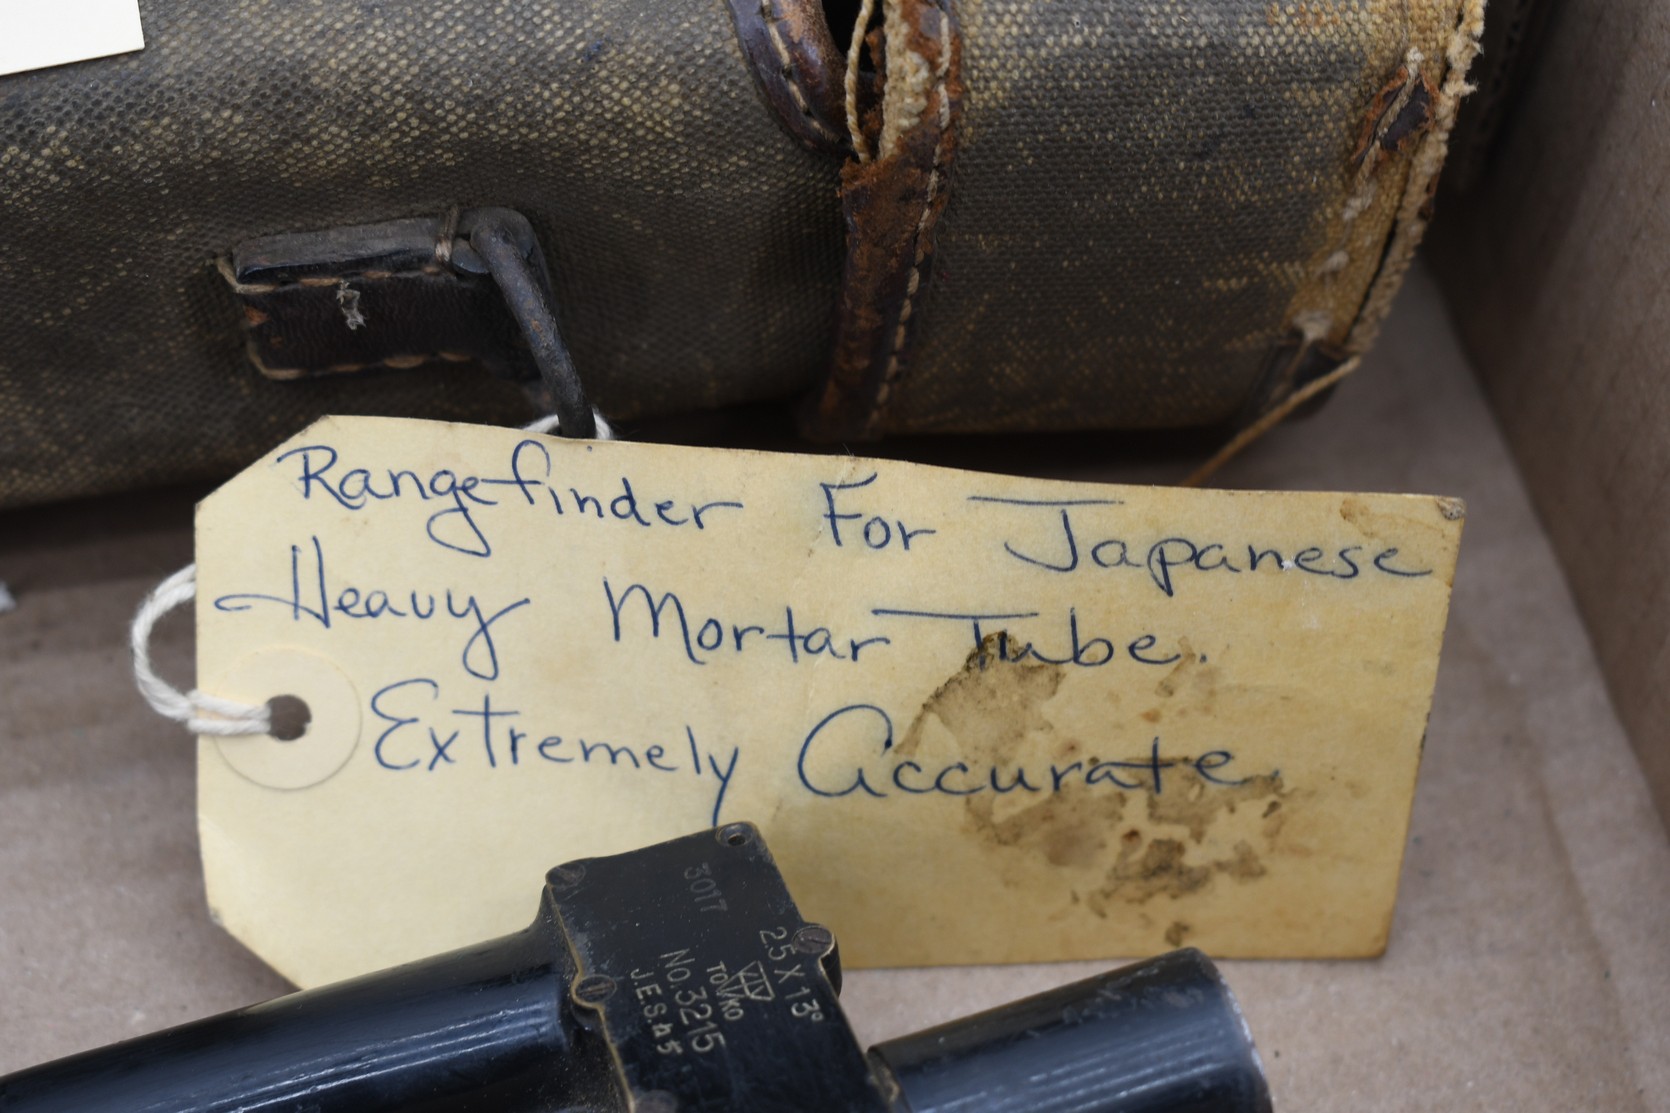 Rangefinder For Japanese
Heavy Mortar Tube.
Extremely Accurate.
3017
2.5 X 13°
TOKO
No.3215
J.E.S.